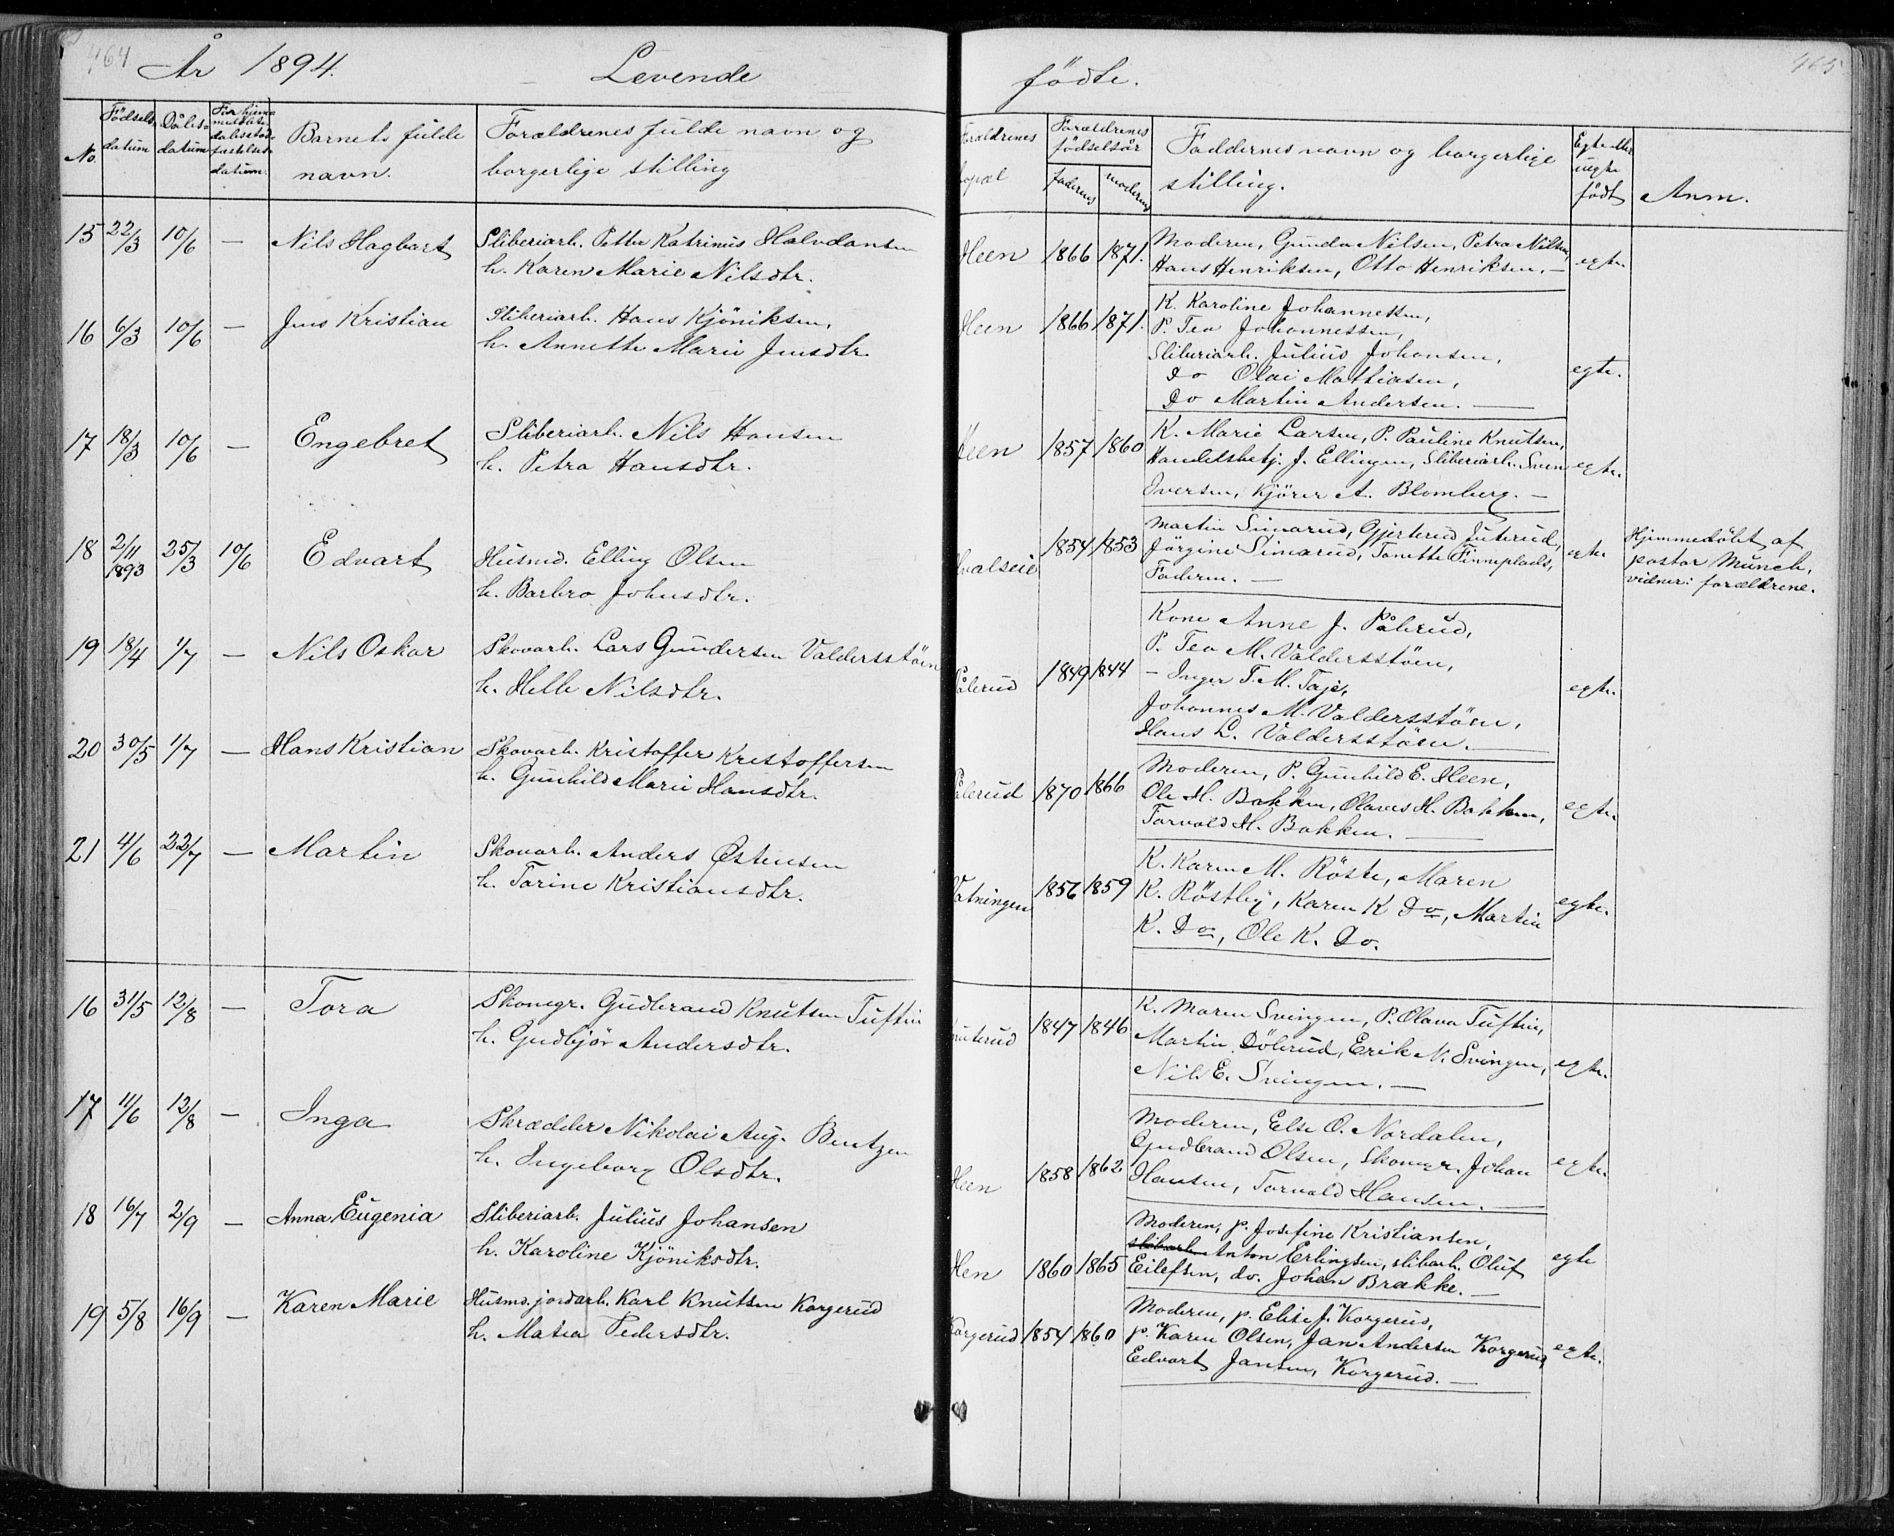 464
År 1894. Levende
No. Fødsels- datum Dåbs- datum For hjemmedøbte dåbsstadfæstelses- datum. Barnets fulde navn. Forældrenes fulde navn og borgerlige stilling
15 22/3 10/6 — Nils Hagbart Sliberiarb. Petter Katrinus Halvdansen
h. Karen Marie Nilsdtr.
16 6/3 10/6 — Jens Kristian Sliberiarb. Hans Kjöniksen,
h. Annette Marie Jensdtr.
17 18/3 10/6 — Engebret Sliberiarb. Nils Hansen
h. Petra Hansdtr.
18 2/11 1893 25/3 10/6 Edvart Husmd. Elling Olsen
h. Barbro Johnsdtr.
19 18/4 1/7 — Nils Oskar Skovarb. Lars Gundersen Valdersstöen
h. Helle Nilsdtr.
20 30/5 1/7 — Hans Kristian Skovarb. Kristoffer Kristoffersen
h. Gunhild Marie Hansdtr.
21 4/6 22/7 — Martin Skovarb. Anders Østensen
h. Torine Kristiansdtr.
16 31/5 12/8 — Tora Skomgr. Gudbrand Knutsen Tuftin
h. Gudbjör Andersdtr.
17 11/6 12/8 — Inga Skrædder Nikolai Aug. Bentzen
h. Ingeborg Olsdtr.
18 16/7 2/9 — Anna Eugenia Sliberiarb. Julius Johansen
h. Karoline Kjöniksdtr.
19 5/8 16/9 — Karen Marie Husmd. jordarb. Karl Knutsen Korgerud
h. Matea Pedersdtr.
465
födte.
Forældrenes bopæl Forældrenes födselsår faderens moderens Faddernes navn og borgerlige stilling. Egte eller uegte födt Anm.
Heen 1866 1871. Moderen, Gunda Nilsen, Petra Nilsen,
Hans Henriksen, Otto Henriksen. — egte.
Heen 1866 1871. K. Karoline Johannessen,
P. Tea Johannessen,
Sliberiarb. Julius Johansen,
Do Olai Mathiasen, egte.
Do Martin Andersen. —
Heen 1857 1860 K. Marie Larsen, P. Pauline Knutsen,
Handelsbetj. J. Ellingsen, Sliberiarb. Sven egte.
Iversen, Kjörer A. Blomberg. —
Hvalseie 1854 1853 Martin Simarud, Gjertrud Juterud,
Jörgine Simarud, Tonette Finneplads, egte
Faderen. —
Hjemmedöbt af
pastor Munch,
vidner: forældrene.
Pålerud 1849 1844 Kone Anne J. Pålerud,
P. Tea M. Valdersstöen,
— Inger T. M. Taje, egte.
Johannes M. Valdersstöen,
Hans L. Valdersstöen. —
Pålerud 1870 1866 Moderen, P. Gunhild E. Heen,
Ole H. Bakken, Olaves H. Bakken, egte.
Torvald H. Bakken. —
Vatningen 1856 1859 K. Karen M. Röste, Maren
K. Röstby, Karen K Do, Martin egte.
K. Do, Ole K. Do.
1847 1846 K. Maren Svingen, P. Olava Tuftin,
Martin Dölerud, Erik N. Svingen, egte.
Nils E. Svingen. —
Heen 1858 1862 Moderen, Else O. Nordalen,
Gudbrand Olsen, Skomgr. Johan egte.
Hansen, Torvald Hansen. —
Hen 1860 1865 Moderen, p. Josefine Kristiansen,
Anton Erlingsen, slibarb. Oluf egte
Eilefsen, do. Johan Brække. —
Korgerud 1854 1860 Moderen, p. Elise J. Korgerud,
p. Karen Olsen, Jan Andersen Korgerud, egte.
Edvart Jansen, Korgerud. —